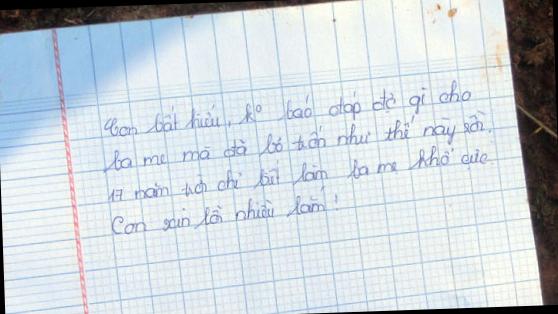 Con bất hiếu, ko báo đáp đc gì cho
ba mẹ mà đã bỏ trốn như thế này rồi.
17 năm trời chỉ biết làm ba mẹ khổ cực
Con xin lỗi nhiều lắm!